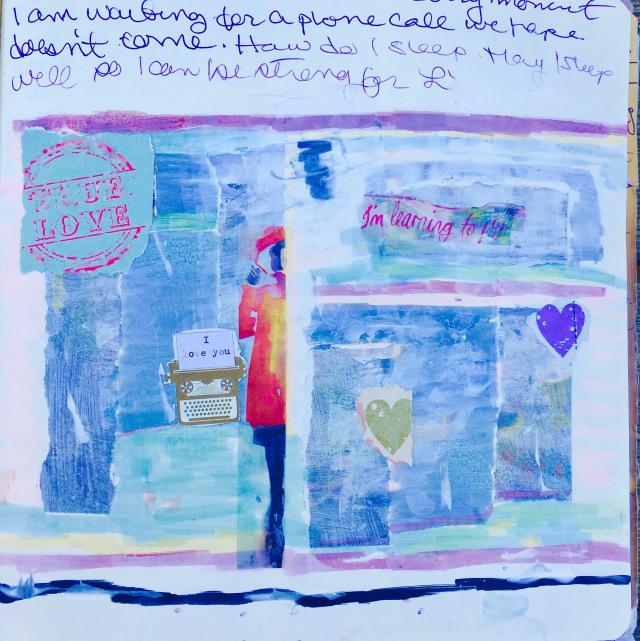 moment
I am waiting for a phone call we hope
doesn't come. How do I sleep. May I sleep
well so I can be strong for L
TRUE
LOVE
I'm learning to
I
love you